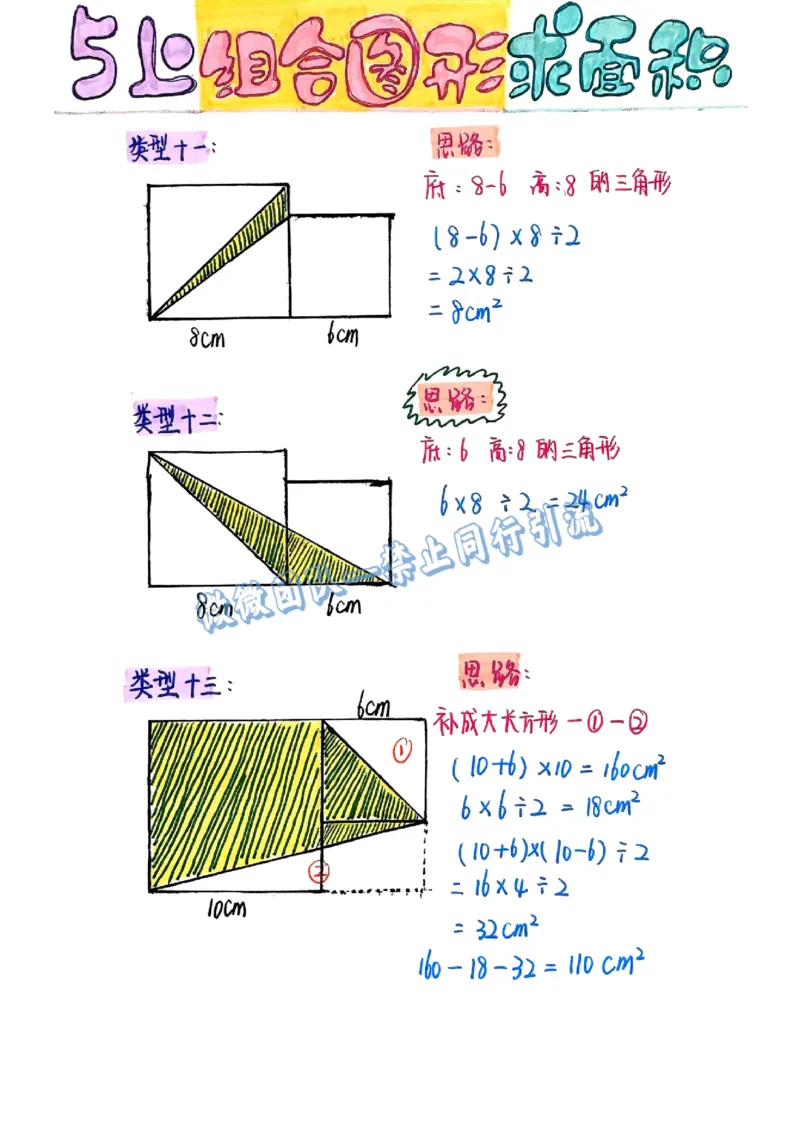 5上组合图形求面积
类型十一:
思路:
底:8-6 高:8 的三角形
(8-6)×8÷2
=2×8÷2
=8cm²
8cm
6cm
类型十二:
思路:
底:6 高:8 的三角形
6×8÷2=24cm²
8cm
6cm
微微团队—禁止同行引流
类型十三:
思路:
6cm
补成大长方形-①-②
①
(10+6)×10=160cm²
6×6÷2=18cm²
(10+6)×(10-6)÷2
②
=16×4÷2
10cm
=32cm²
160-18-32=110cm²